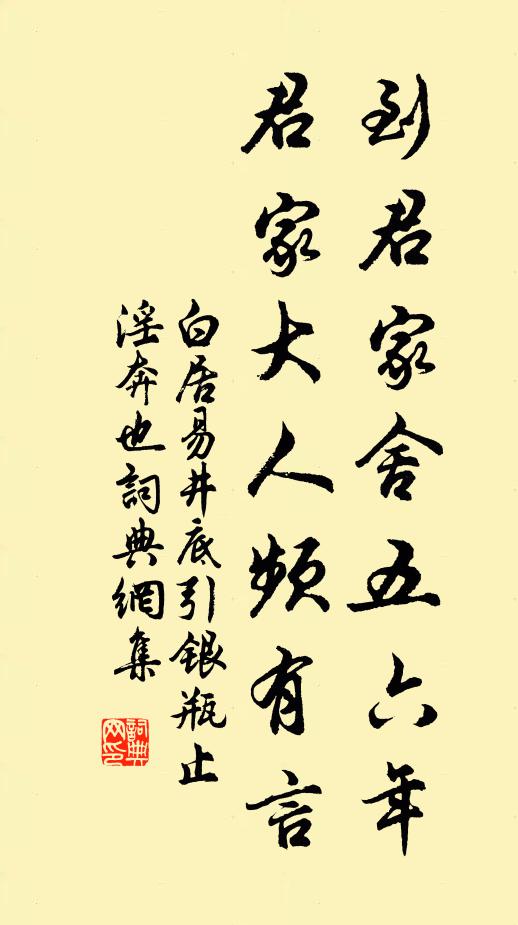 到君家舍五六年
君家大人頻有言
白居易井底引銀瓶止
淫奔也詞典網集
詞典
网印